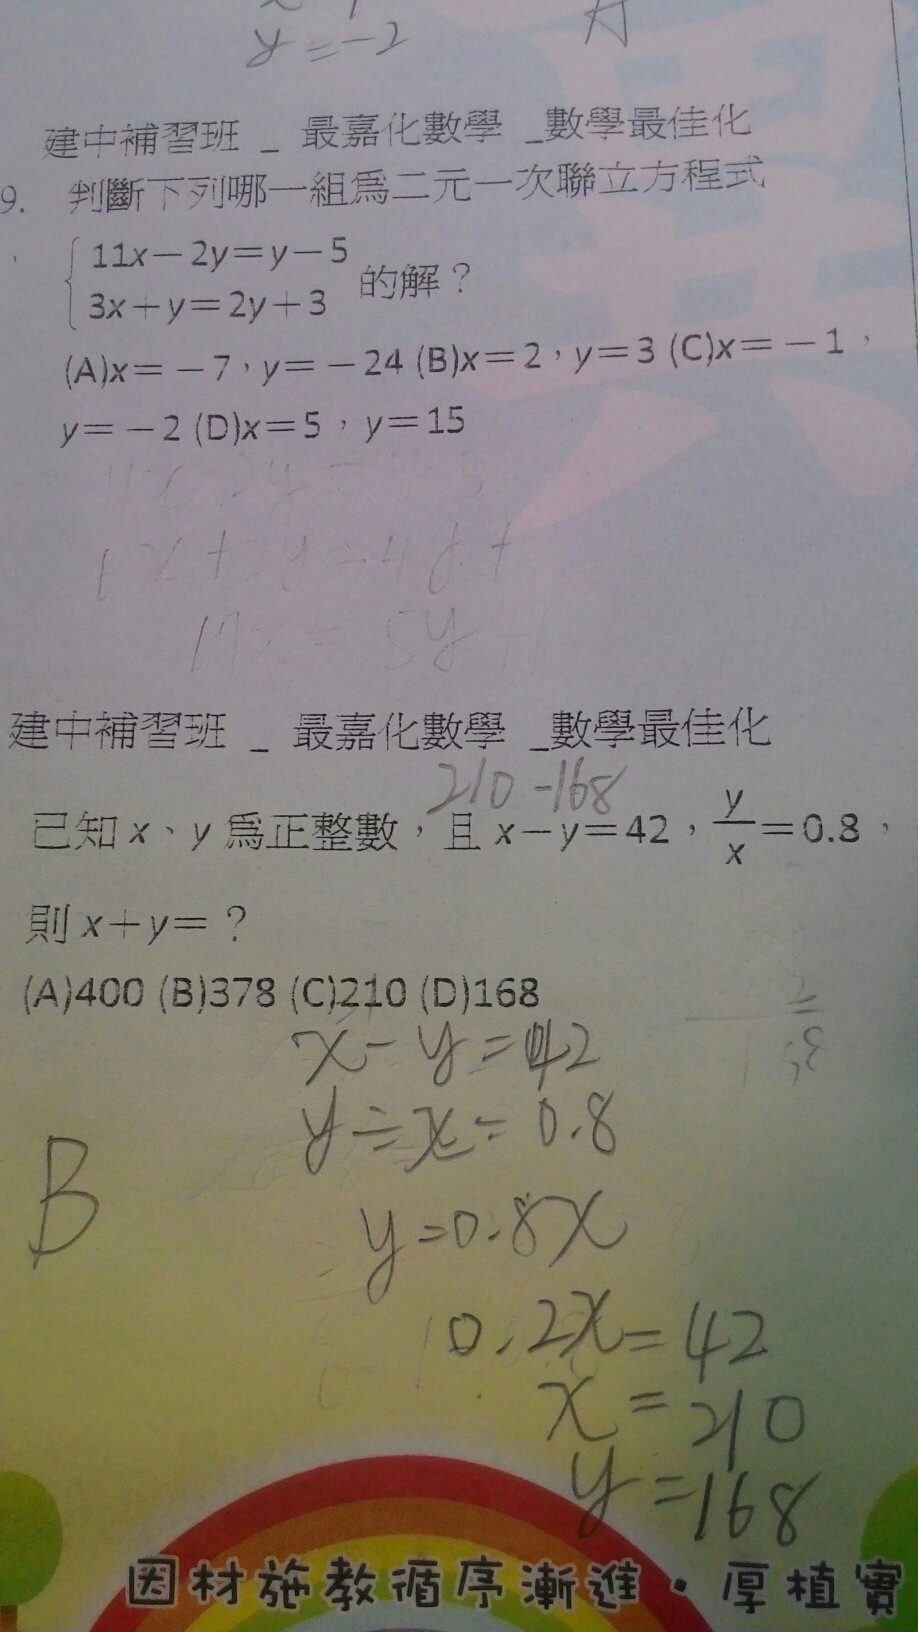 y=-2
A
建中補習班 _ 最嘉化數學 _數學最佳化
9. 判斷下列哪一組為二元一次聯立方程式
11x－2y＝y－5
3x＋y＝2y＋3
的解？
(A)x＝－7，y＝－24 (B)x＝2，y＝3 (C)x＝－1，
y＝－2 (D)x＝5，y＝15
17x=5y+1
建中補習班 _ 最嘉化數學 _數學最佳化
210-168
已知 x、y 為正整數，且 x－y＝42，y/x＝0.8，
則 x＋y＝？
(A)400 (B)378 (C)210 (D)168
x-y=42
y÷x=0.8
B
y=0.8x
0.2x=42
x=210
y=168
因材施教循序漸進・厚植實